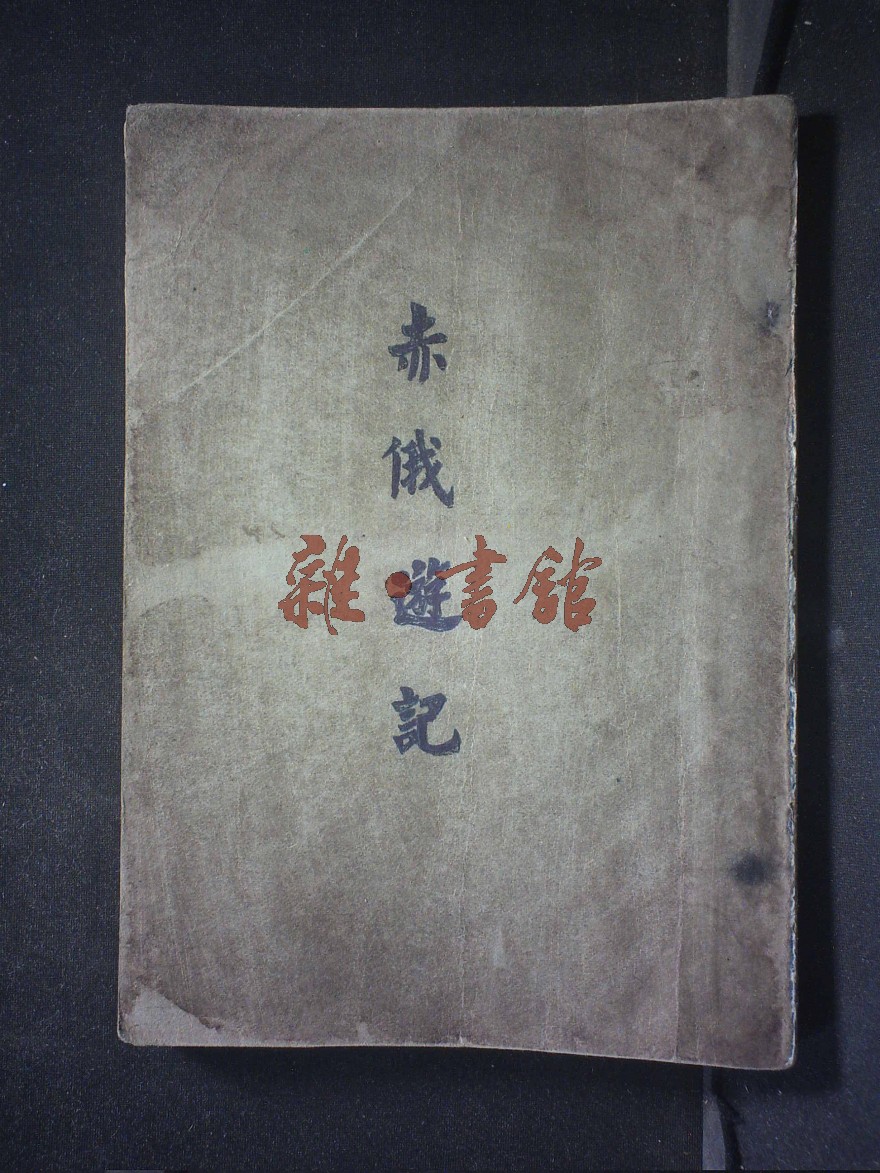 赤俄遊記
雜·書館